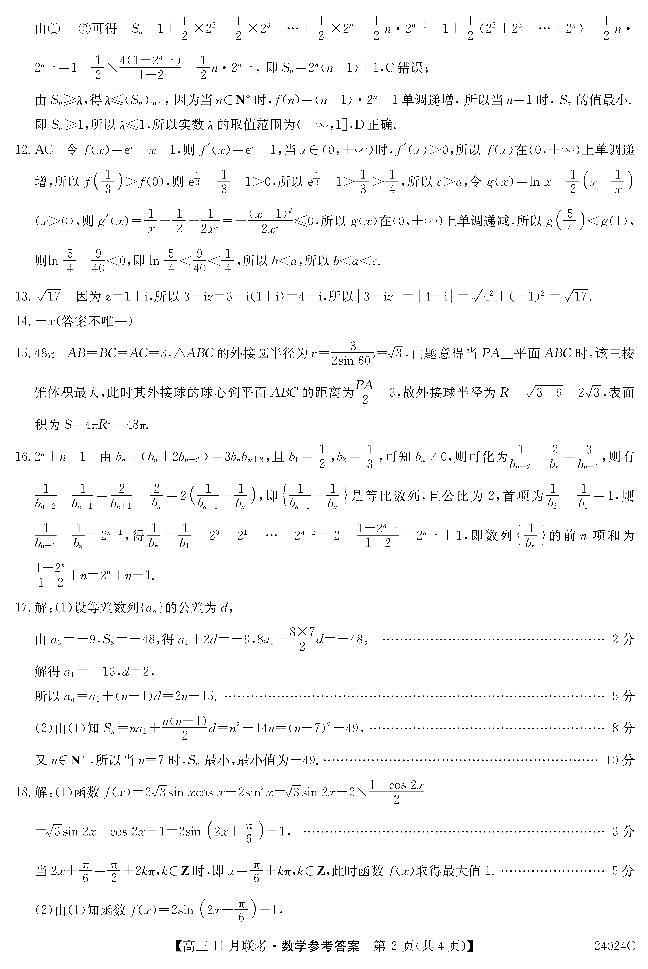 由①-②可得-Sₙ=1+1/2×2²+1/2×2³+…+1/2×2ⁿ-1/2n·2ⁿ⁺¹=1+1/2(2²+2³+…+2ⁿ)-1/2n·
2ⁿ⁺¹=1+1/2×4(1-2ⁿ⁻¹)/(1-2)-1/2n·2ⁿ⁺¹,即Sₙ=2ⁿ(n-1)+1,C错误;
由Sₙ≥λ,得λ≤(Sₙ)min,因为当n∈N*时,f(n)=(n-1)·2ⁿ+1单调递增,所以当n=1时,Sₙ的值最小,
即Sₙ≥1,所以λ≤1,所以实数λ的取值范围为(-∞,1],D正确.
12.AC 令f(x)=eˣ-x-1,则f′(x)=eˣ-1,当x∈(0,+∞)时,f′(x)>0,所以f(x)在(0,+∞)上单调递
增,所以f(1/3)>f(0),则e^(1/3)-1/3-1>0,所以e^(1/3)-1>1/3>1/4,所以c>a,令g(x)=ln x-1/2(x-1/x)
(x>0),则g′(x)=1/x-1/2-1/2x²=-(x-1)²/2x²≤0,所以g(x)在(0,+∞)上单调递减,所以g(5/4)<g(1),
则ln 5/4-9/40<0,即ln 5/4<9/40<1/4,所以b<a,所以b<a<c.
13.√17 因为z=1+i,所以3-iz=3-i(1+i)=4-i,所以|3-iz|=|4-i|=√(4²+(-1)²)=√17.
14.-x(答案不唯一)
15.48π AB=BC=AC=3,△ABC的外接圆半径为r=3/(2sin 60°)=√3,由题意得当PA⊥平面ABC时,该三棱
锥体积最大,此时其外接球的球心到平面ABC的距离为PA/2=3,故外接球半径为R=√(3+9)=2√3,表面
积为S=4πR²=48π.
16.2ⁿ+n-1 由bₙ₊₁(bₙ+2bₙ₊₂)=3bₙbₙ₊₂,且b₁=1/2,b₂=1/3,可知bₙ≠0,则可化为1/bₙ₊₂+2/bₙ=3/bₙ₊₁,则有
1/bₙ₊₂-1/bₙ₊₁=2/bₙ₊₁-2/bₙ=2(1/bₙ₊₁-1/bₙ),即{1/bₙ₊₁-1/bₙ}是等比数列,且公比为2,首项为1/b₂-1/b₁=1,则
1/bₙ₊₁-1/bₙ=2ⁿ⁻¹,得1/bₙ=1/b₁+2⁰+2¹+…+2ⁿ⁻²=2+(1-2ⁿ⁻¹)/(1-2)=2ⁿ⁻¹+1,即数列{1/bₙ}的前n项和为
(1-2ⁿ)/(1-2)+n=2ⁿ+n-1.
17.解:(1)设等差数列{aₙ}的公差为d,
由a₃=-9,S₈=-48,得a₁+2d=-9,8a₁+(8×7)/2 d=-48, …… 2分
解得a₁=-13,d=2,
所以aₙ=a₁+(n-1)d=2n-15. …… 5分
(2)由(1)知Sₙ=na₁+n(n-1)/2 d=n²-14n=(n-7)²-49, …… 8分
又n∈N*,所以当n=7时,Sₙ最小,最小值为-49. …… 10分
18.解:(1)函数f(x)=2√3sin xcos x-2sin²x=√3sin 2x-2×(1-cos 2x)/2
=√3sin 2x+cos 2x-1=2sin(2x+π/6)-1, …… 3分
当2x+π/6=π/2+2kπ,k∈Z时,即x=π/6+kπ,k∈Z,此时函数f(x)取得最大值1. …… 5分
(2)由(1)知函数f(x)=2sin(2x+π/6)-1,
【高三11月联考·数学参考答案 第2页(共4页)】 24024C